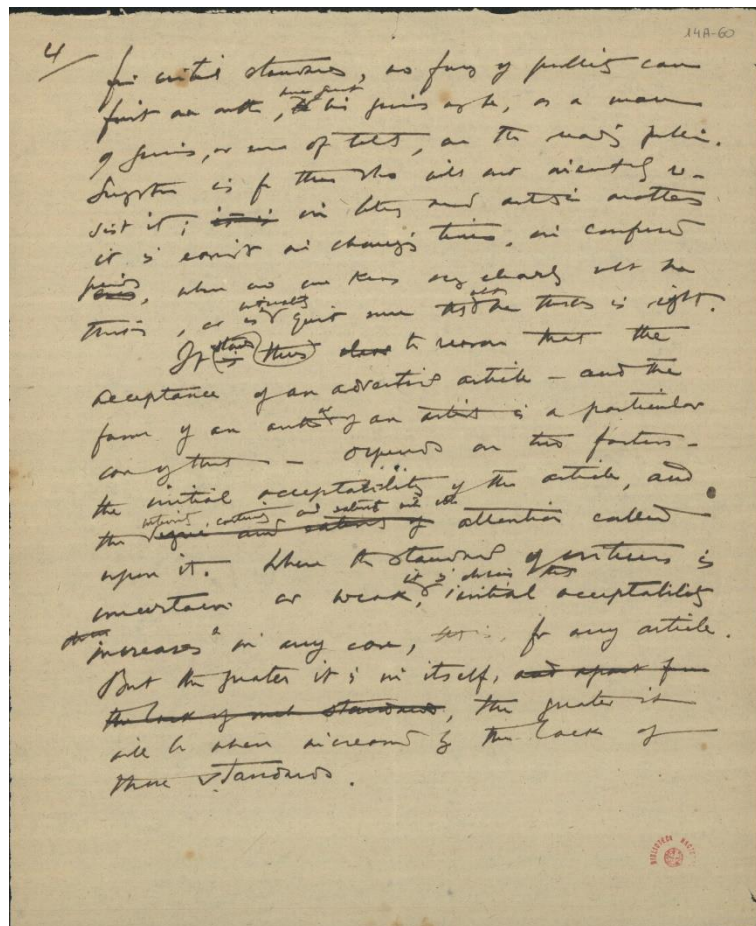 14A-60
4
critical standards, no fury of publicity can
an author, his genius, as a man
of genius, or even of talent, on the reading public.
Suggestion is for those who will not mentally re-
sist it; in literary and artistic matters
it is easiest in changing times, in confused
periods, when no one knows very clearly what he
thinks, or is quite sure that what he thinks is right.
It stands thus to reason that the
acceptance of an advertised article - and the
fame of an author or of an artist is a particular
case of that - depends on two factors -
the initial acceptability of the article, and
the intensity, continuity and extent of attention called
upon it. Where the standard of criticism is
uncertain or weak, it is obvious that initial acceptability
increases in any case, for any article.
But the greater it is in itself, and apart from
the lack of such standards, the greater it
will be when increased by the lack of
those standards.
BIBLIOTECA